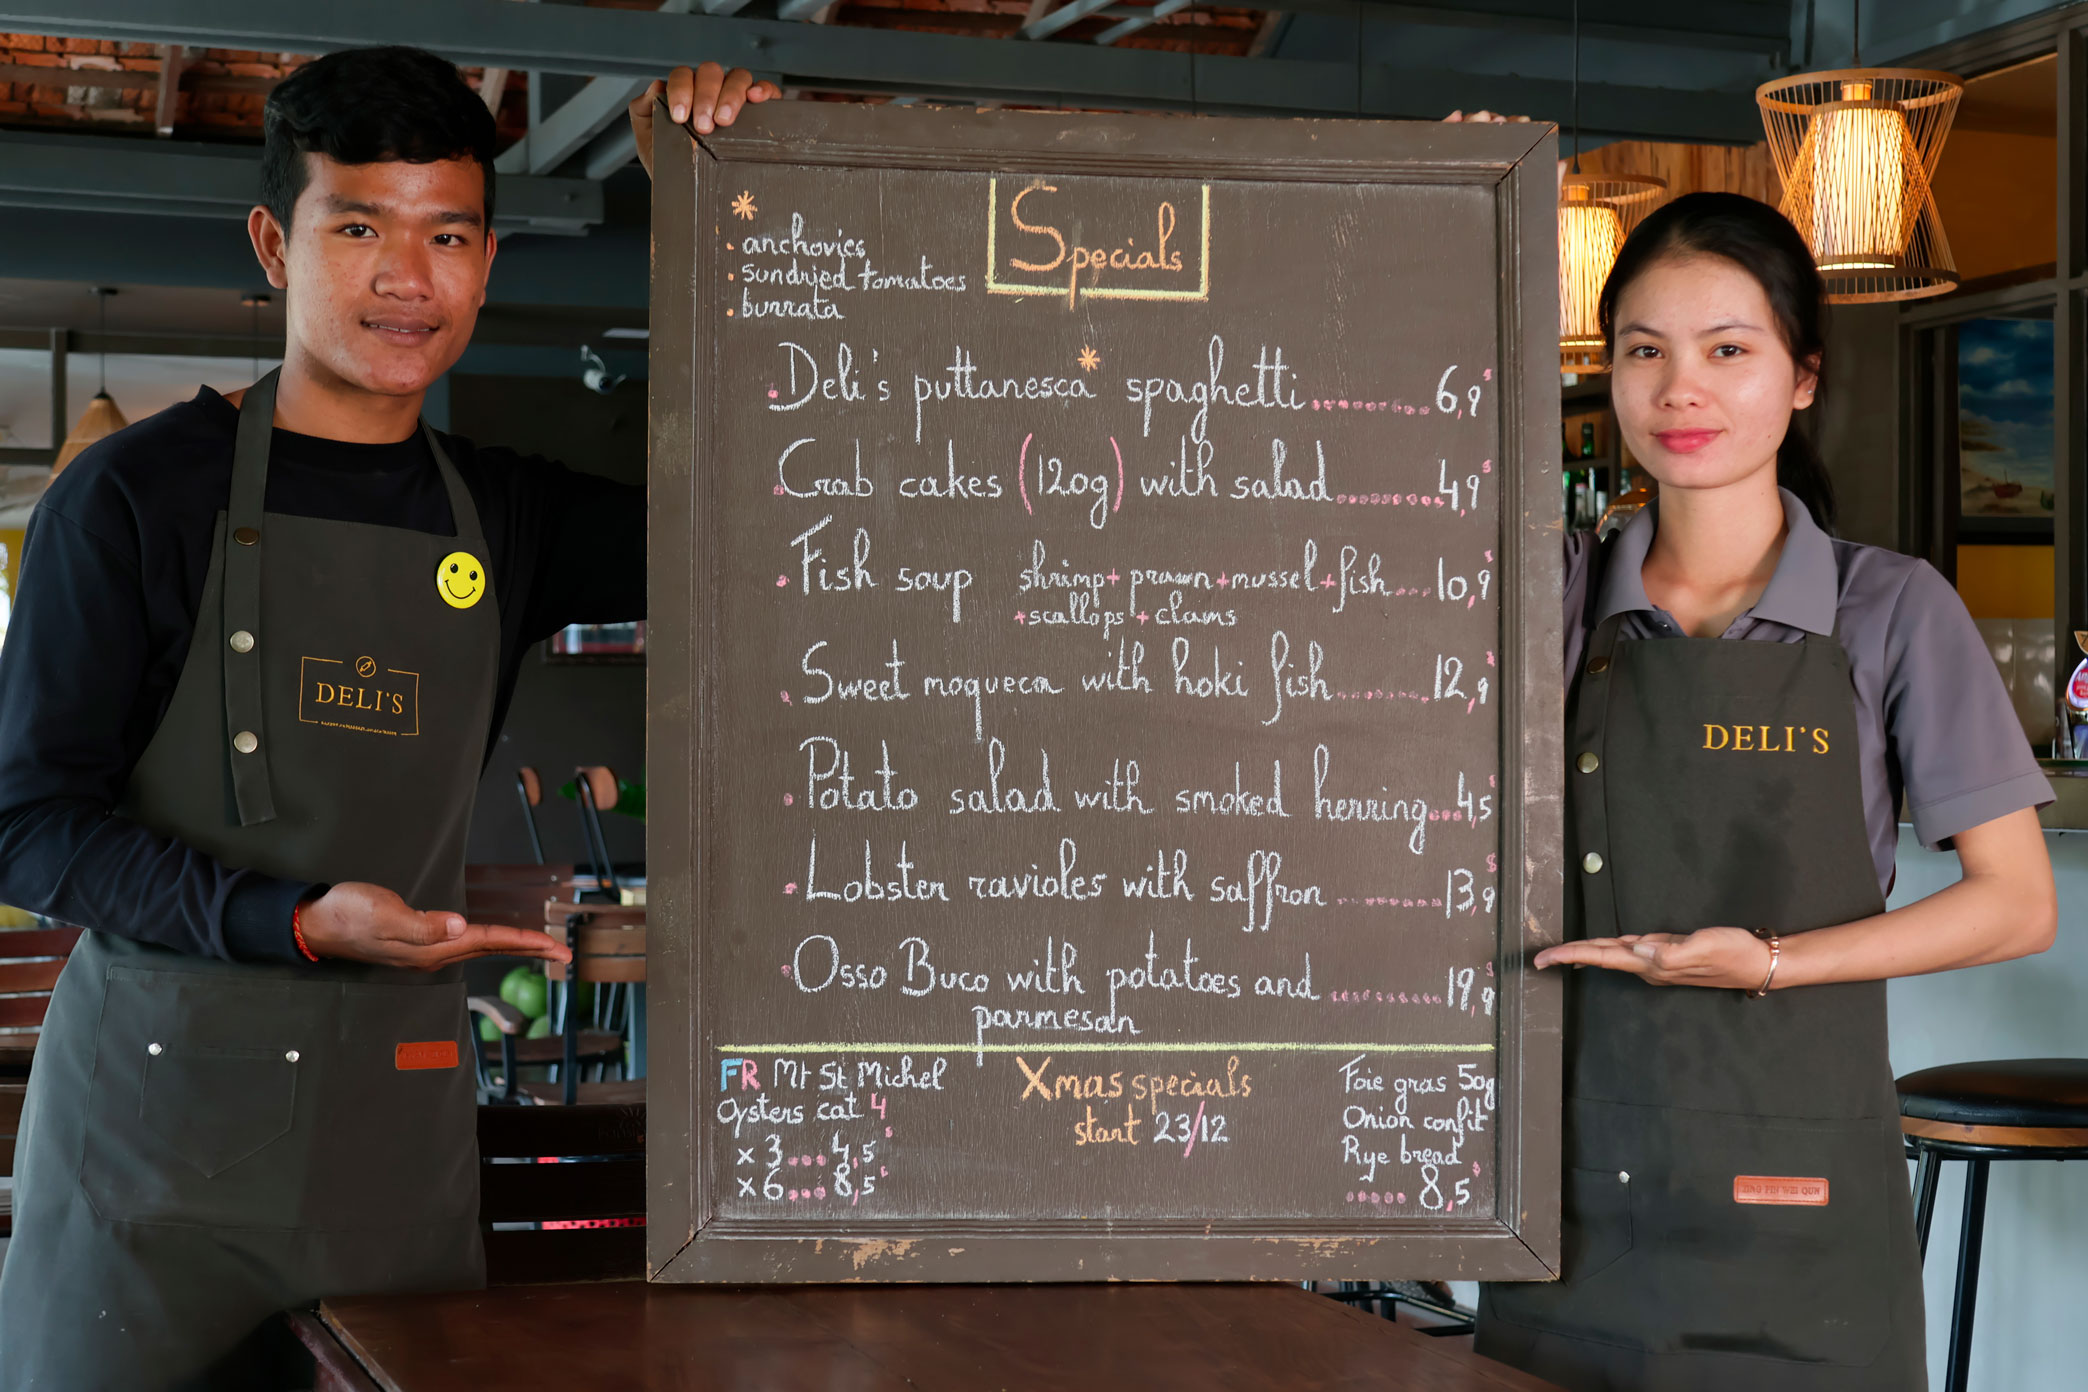 Specials
*
. anchovies
. sundried tomatoes
. burrata
. Deli's puttanesca* spaghetti.........6,9$
. Crab cakes (120g) with salad.........4,9$
. Fish soup shrimp+prawn+mussel+fish...10,9$
+scallops+clams
. Sweet moqueca with hoki fish........12,9$
. Potato salad with smoked herring...4,5$
. Lobster ravioles with saffron .........13,9$
. Osso Buco with potatoes and .........19,9$
parmesan
FR Mt St Michel
Oysters cat 4
x 3...4,5$
x 6...8,5$
Xmas specials
start 23/12
Foie gras 50g
Onion confit
Rye bread
.....8,5$
DELI'S
DELI'S